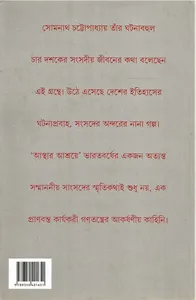 সোমনাথ চট্টোপাধ্যায় তাঁর ঘটনাবহুল
চার দশকের সংসদীয় জীবনের কথা বলেছেন
এই গ্রন্থে। উঠে এসেছে দেশের ইতিহাসের
ঘটনাপ্রবাহ, সংসদের অন্দরের নানা গল্প।
'আস্থার আশ্রয়ে' ভারতবর্ষের একজন অত্যন্ত
সম্মাননীয় সাংসদের স্মৃতিকথাই শুধু নয়, এক
প্রাণবন্ত কার্যকরী গণতন্ত্রের আকর্ষণীয় কাহিনি।